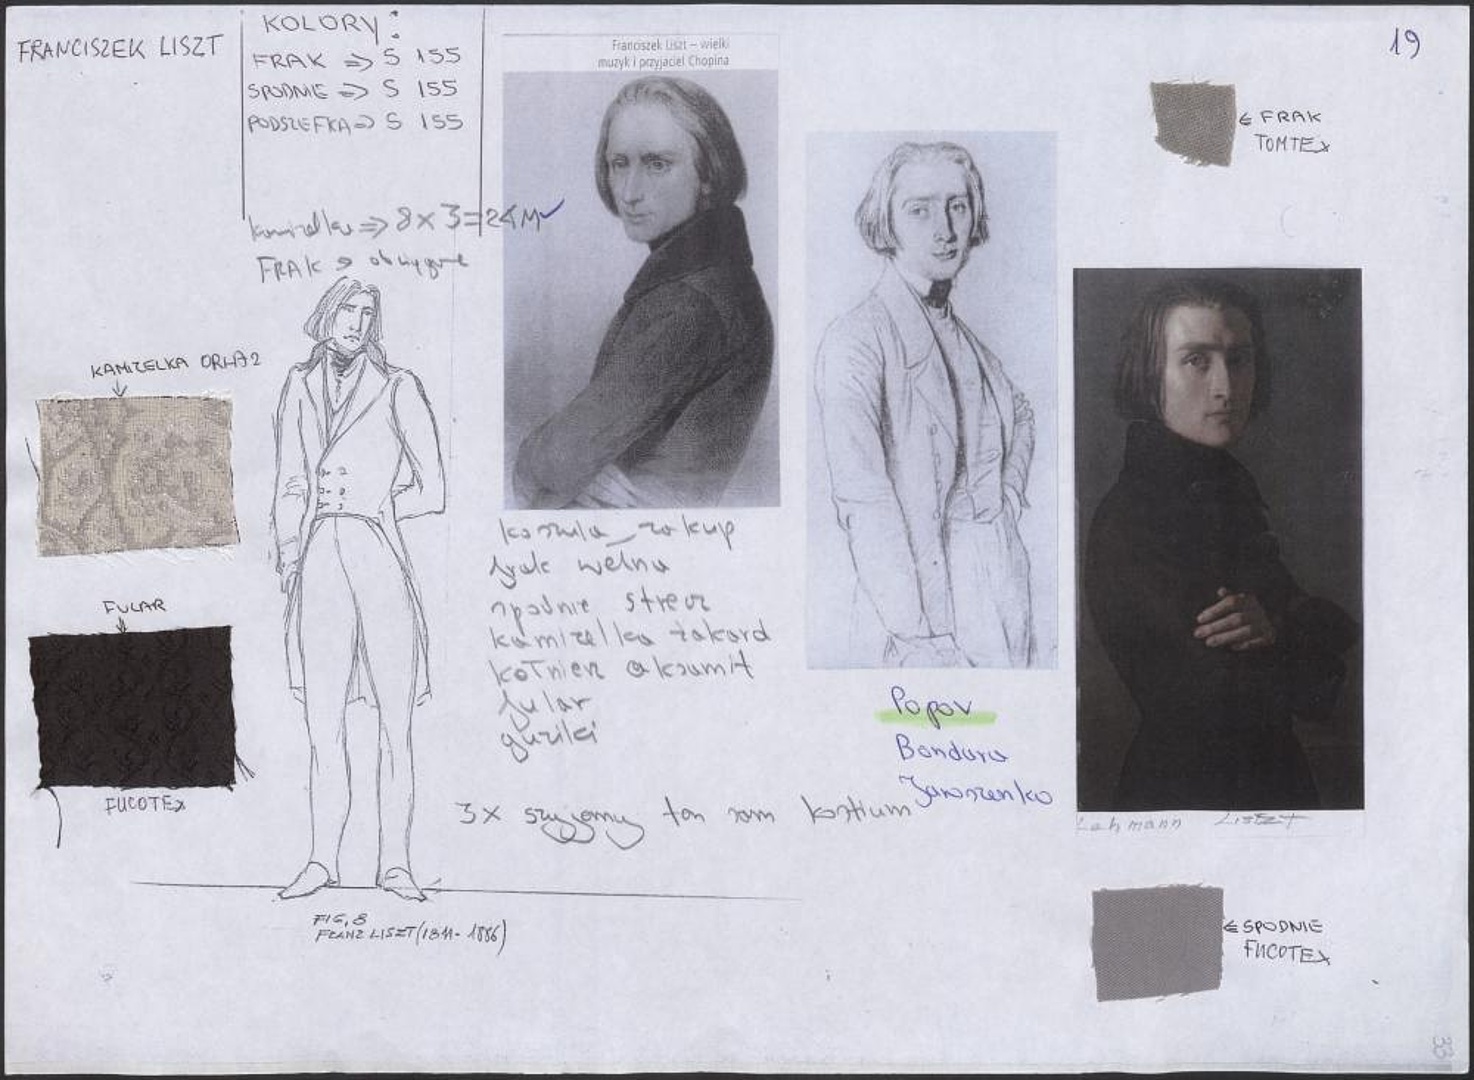 FRANCISZEK LISZT
KOLORY:
FRAK => S 155
SPODNIE => S 155
PODSZEFKA => S 155
kamizelka => 8 x 3 = 24 M
FRAK
Franciszek Liszt – wielki
muzyk i przyjaciel Chopina
19
FRAK
TOMTEX
KAMIZELKA
FULAR
FUCOTEX
koszula zakup
frak wełna
spodnie strecz
kamizelka żakard
kołnierz aksamit
fular
guziki
3x szyjemy ten sam kostium
Popov
Bondara
Jaroszenko
Lehmann Liszt
SPODNIE
FUCOTEX
FIG. 8
FRANZ LISZT (1811-1886)
33